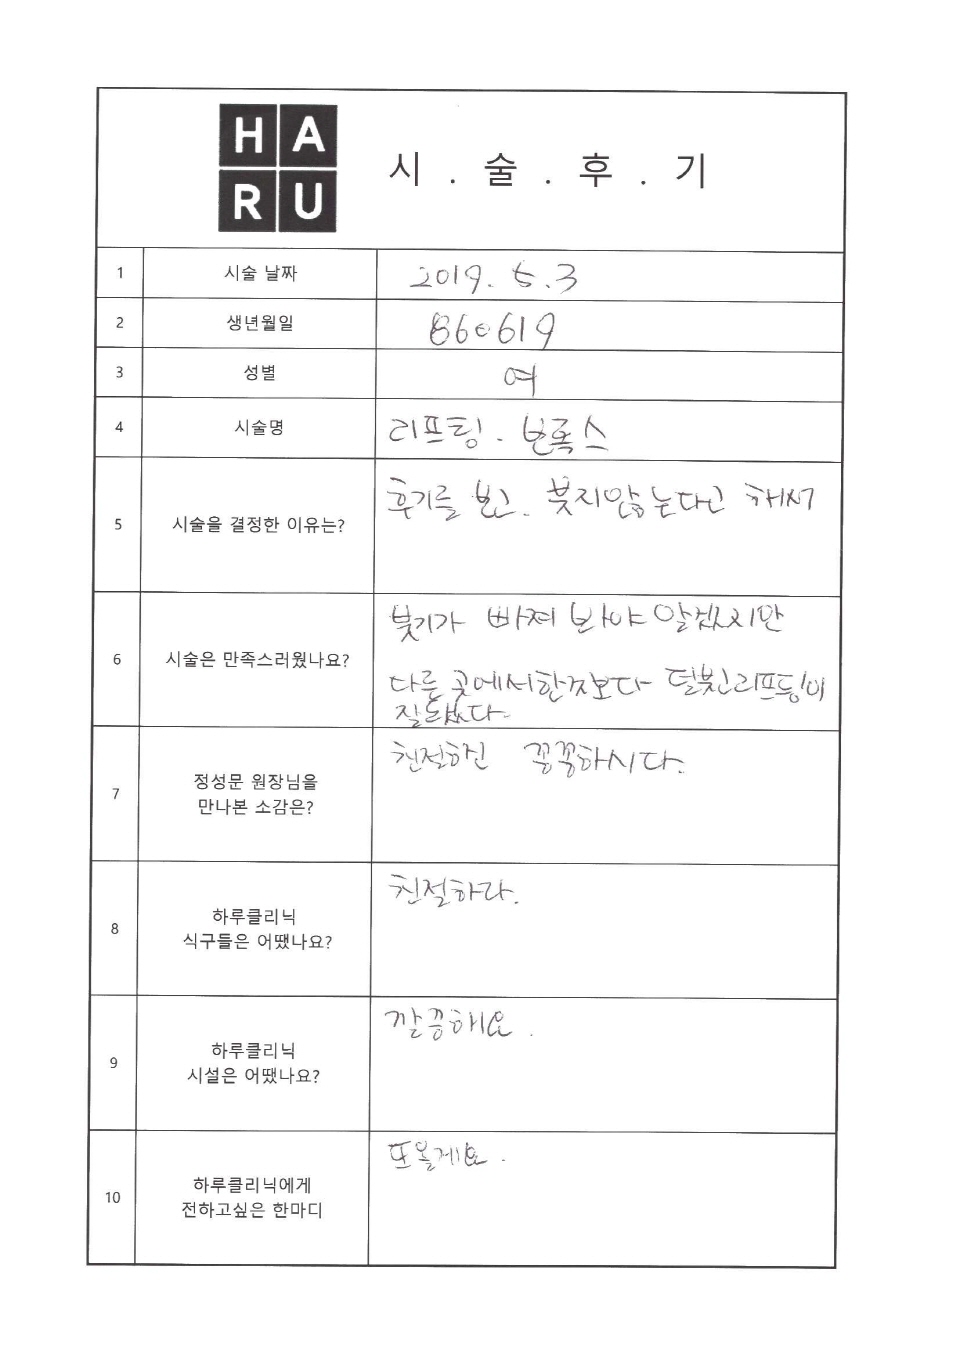 HA
RU
시 . 술 . 후 . 기
1 시술 날짜 2019. 5.3
2 생년월일 860619
3 성별 여
4 시술명 리프팅. 보톡스
5 시술을 결정한 이유는? 후기를 보고. 붓지않는다고 해서
6 시술은 만족스러웠나요? 붓기가 빠져 봐야 알겠지만
다른 곳에서한거보다 덜붓고리프팅이
잘됐다.
7 정성문 원장님을
만나본 소감은?
친절하신 꼼꼼하시다.
8 하루클리닉
식구들은 어땠나요?
친절하다.
9 하루클리닉
시설은 어땠나요?
깔끔해요.
10 하루클리닉에게
전하고싶은 한마디
또올게요.